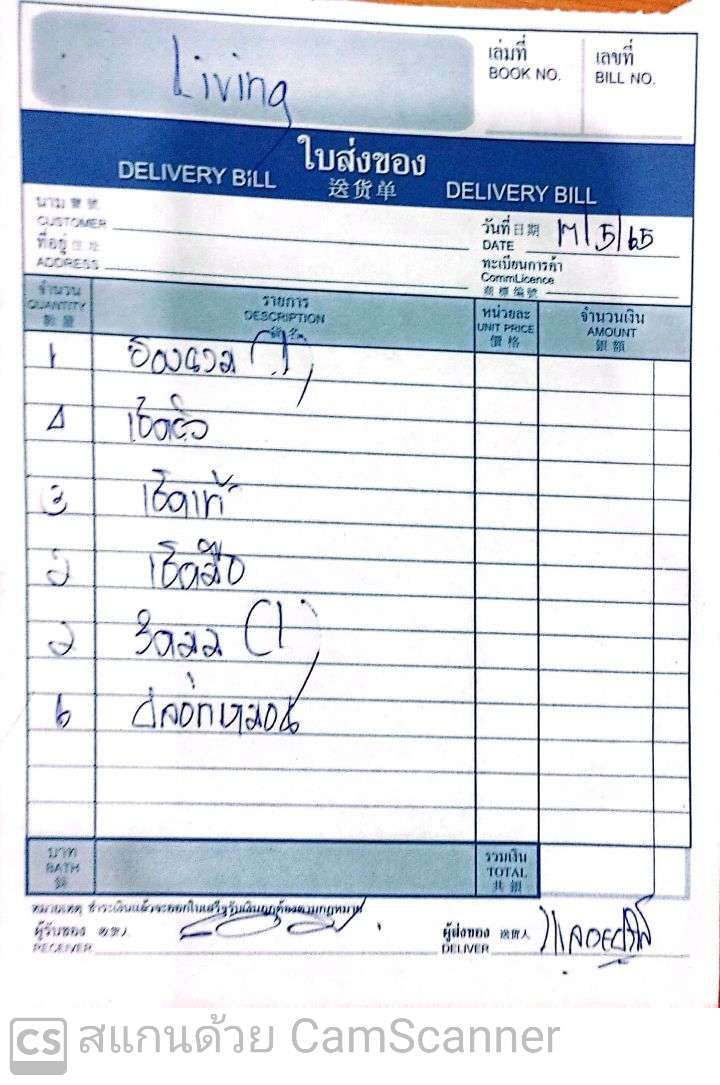 Living
เล่มที่
BOOK NO.
เลขที่
BILL NO.
ใบส่งของ
DELIVERY BILL 送货单 DELIVERY BILL
นาม 寶號
CUSTOMER
ที่อยู่ 住址
ADDRESS
วันที่ 日期
DATE 17/5/65
ทะเบียนการค้า
CommLicence
商標編號
จำนวน
QUANTITY
數量
รายการ
DESCRIPTION
หน่วยละ
UNIT PRICE
價格
จำนวนเงิน
AMOUNT
銀額
1
4 เช็ดผิว
3 เช็ดเท้า
2 เช็ดมือ
2 (1)
6 ปลอกหมอน
บาท
BATH
銖
รวมเงิน
TOTAL
共銀
หมายเหตุ ชำระเงินแล้วจะออกใบเสร็จรับเงินถูกต้องตามกฎหมาย
ผู้รับของ 收货人
RECEIVER
ผู้ส่งของ 送貨人
DELIVER
CS สแกนด้วย CamScanner